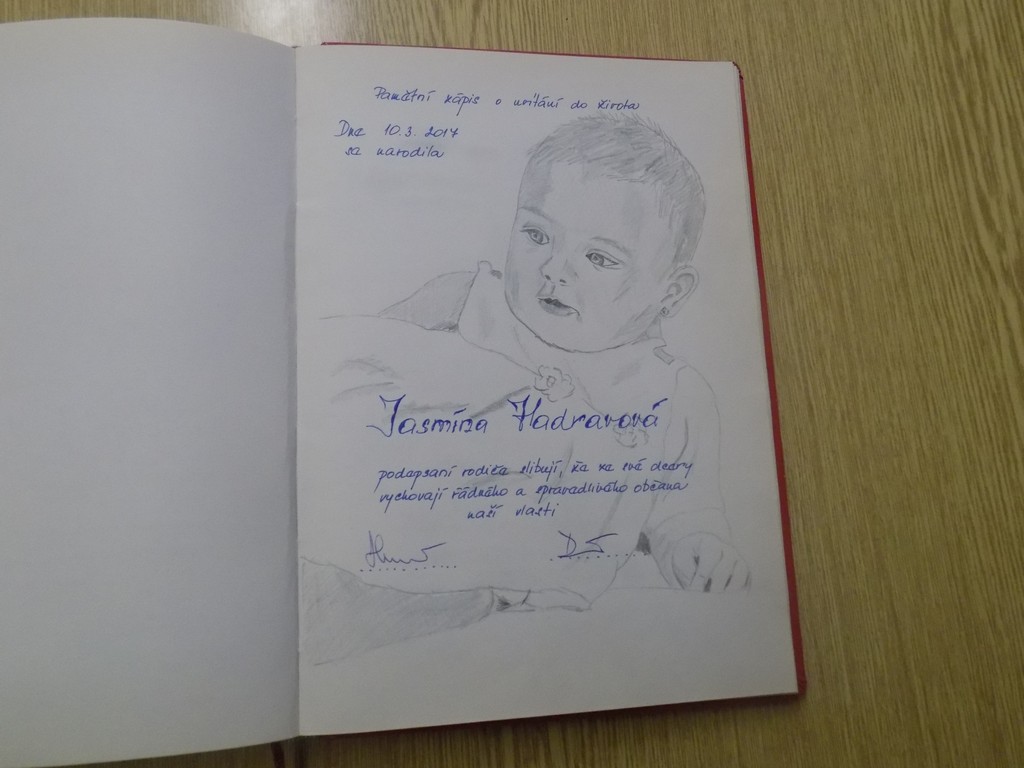 Památní nápis o uvítání do života
Dne 10.3. 2014
se narodila
Jasmína Hadravová
podepsaní rodiče slibují, že ze své dcery
vychovají řádného a spravedlivého občana
naší vlasti